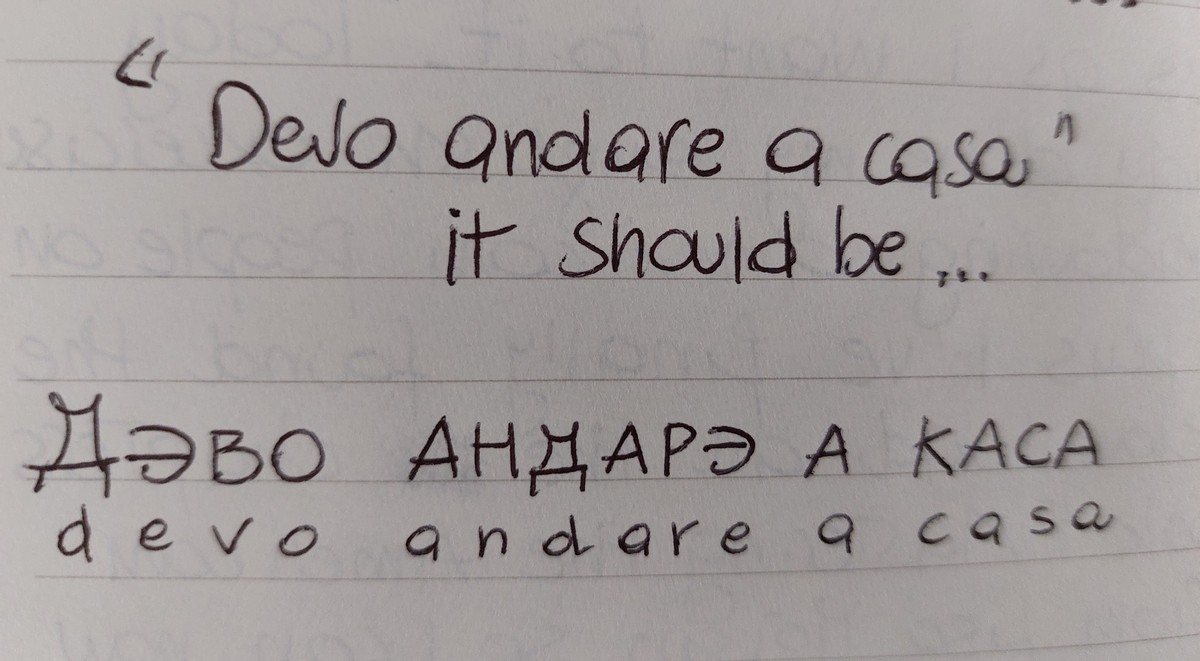 “Devo andare a casa”
it should be...
ДЭВО АНДАРЭ А КАСА
devo andare a casa